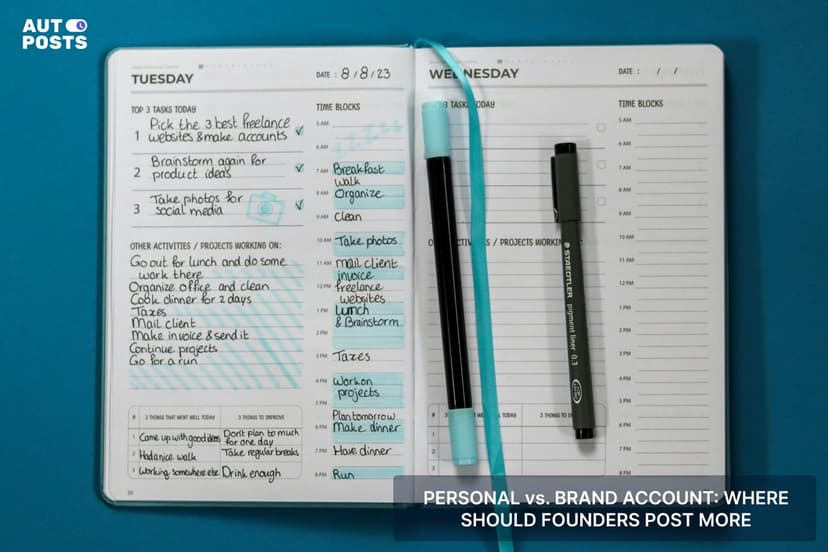 AUT
POSTS
TUESDAY
DATE : 8/8/23
TOP 3 TASKS TODAY
1 Pick the 3 best freelance
websites & make accounts
2 Brainstorm again for
product ideas
3 Take photos for
social media
OTHER ACTIVITIES / PROJECTS WORKING ON:
Go out for lunch and do some
work there
Organize office and clean
Cook dinner for 2 days
Taxes
Mail client
Make invoice & send it
Continue projects
Go for a run
# 3 THINGS THAT WENT WELL TODAY 3 THINGS TO IMPROVE
1 Came up with good ideas Don't plan to much
for one day
2 Had a nice walk Take regular breaks
3 Working somewhere else Drink enough
20
TIME BLOCKS
5 AM
6 AM zzzzz
7 AM Breakfast
walk
8 AM Organize
9 AM Clean
10 AM Take photos
11 AM Mail client
invoice
12 PM freelance
websites
1 PM Lunch
& Brainstorm
2 PM
3 PM Taxes
4 PM Work on
projects
5 PM
Plan tomorrow
6 PM Make dinner
7 PM Have dinner
8 PM Run
WEDNESDAY
DATE : / /
3 TASKS TODAY
ACTIVITIES / PROJECTS WORKING
# WENT WELL TODAY 3 THINGS TO
1
2
3
TIME BLOCKS
5 AM
6 AM
7 AM
8 AM
9 AM
10 AM
11 AM
12 PM
1 PM
2 PM
3 PM
4 PM
5 PM
6 PM
7 PM
8 PM
STAEDTLER
pigment liner 0.3
PERSONAL vs. BRAND ACCOUNT: WHERE
SHOULD FOUNDERS POST MORE